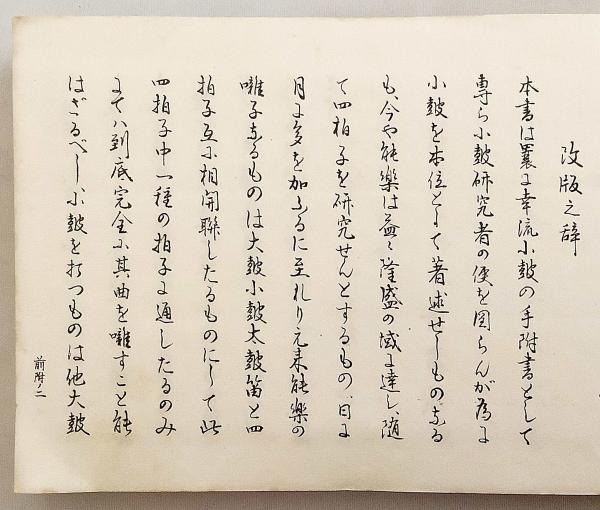 改版之辞
本書は曩に幸流小鼓の手附書として
専ら小鼓研究者の便を図らんが為に
小鼓を本位として著述せしものなる
も、今や能楽は益々隆盛の域に達し、随
て四拍子を研究せんとするもの、日に
月に多を加ふるに至れり元来能楽の
囃子なるものは大鼓小鼓太鼓笛と四
拍子互に相関聯したるものにして此
四拍子中一種の拍子に通したるのみ
にてハ到底完全に其曲を囃すこと能
はざるべし小鼓を打つものは他大鼓
前附ノ二